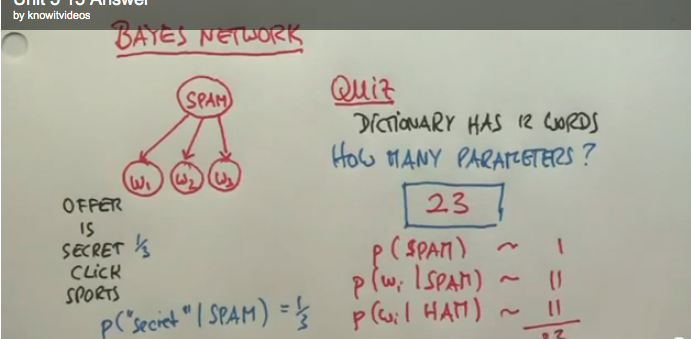 Unit 5 15 Answer
by knowitvideos
BAYES NETWORK
SPAM
W₁ W₂ W₃
OFFER
IS
SECRET 1/3
CLICK
SPORTS
p("secret" | SPAM) = 1/3
QUIZ
DICTIONARY HAS 12 WORDS
HOW MANY PARAMETERS?
23
p(SPAM) ~ 1
p(wᵢ | SPAM) ~ 11
p(wᵢ | HAM) ~ 11
23